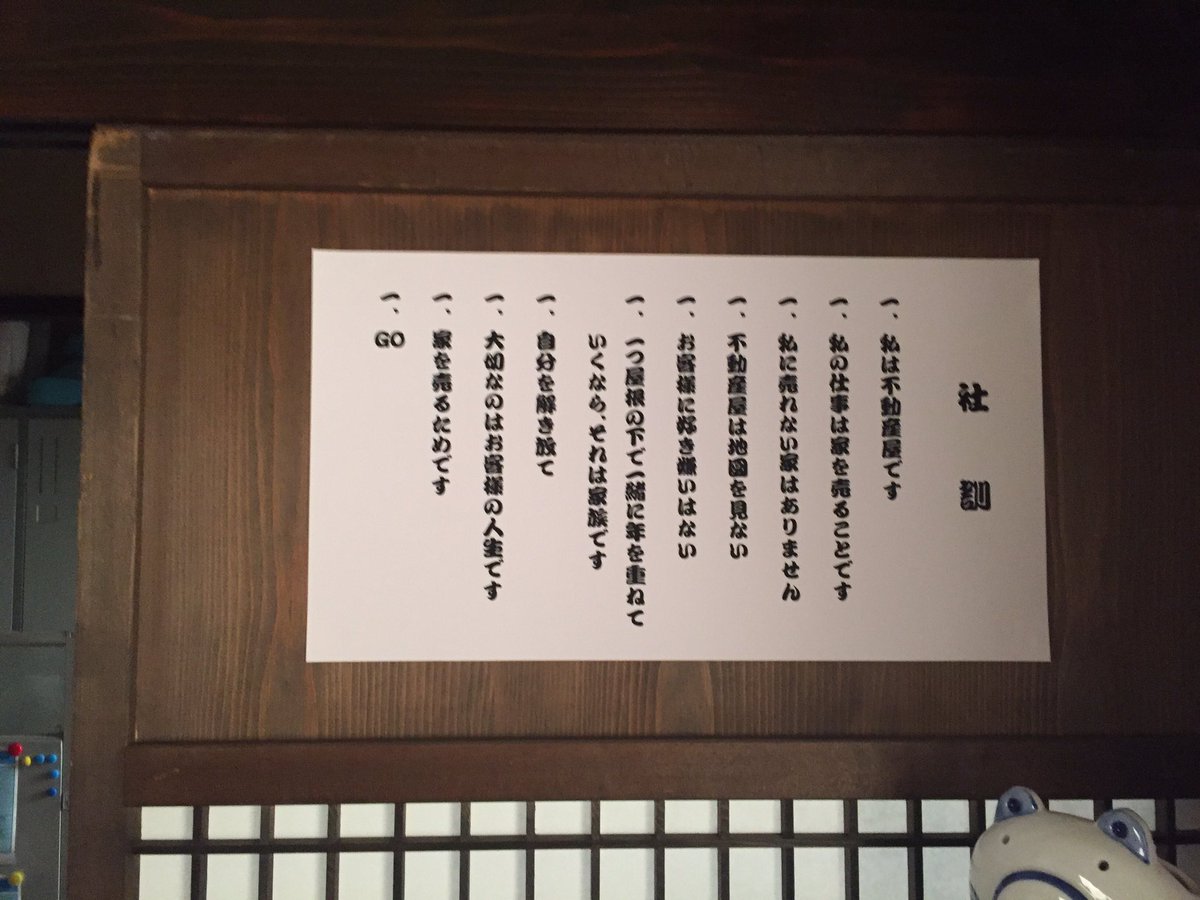 社訓
一、私は不動産屋です
一、私の仕事は家を売ることです
一、私に売れない家はありません
一、不動産屋は地図を見ない
一、お客様に好き嫌いはない
一、一つ屋根の下で一緒に年を重ねて
いくなら、それは家族です
一、自分を解き放て
一、大切なのはお客様の人生です
一、家を売るためです
一、GO